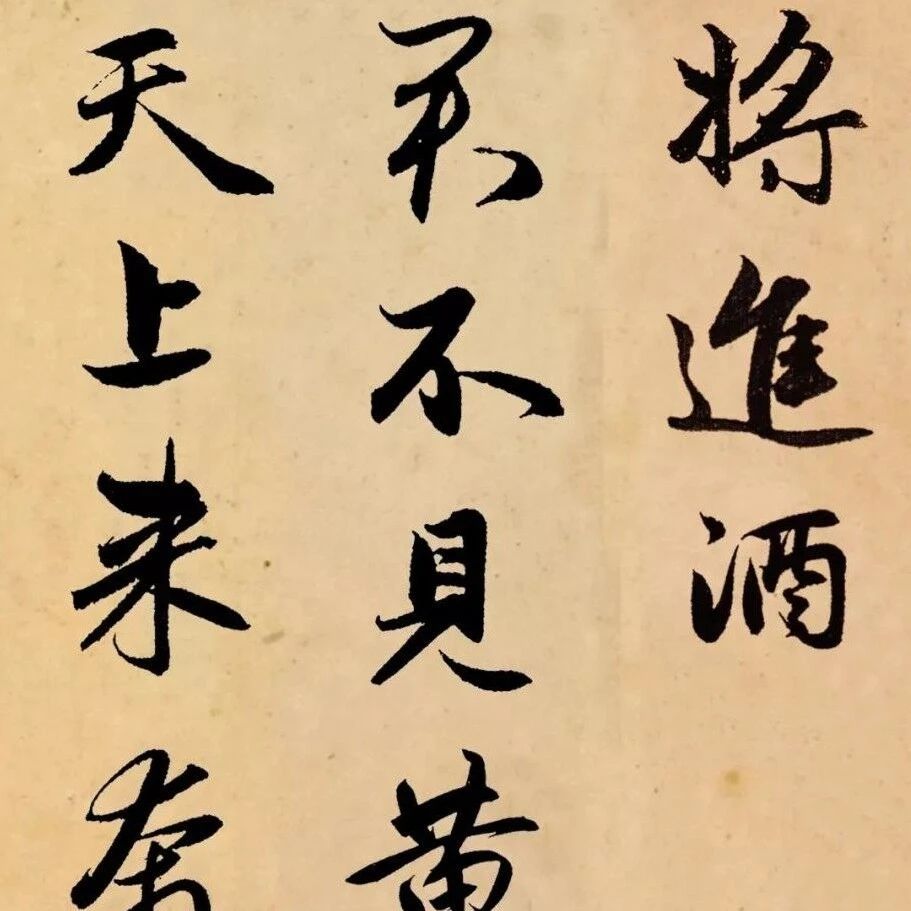 將進酒
君不見黄
天上来奔